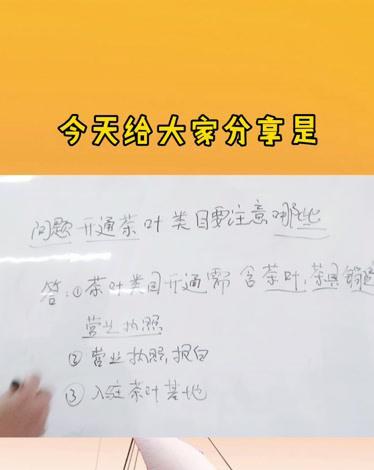 今天给大家分享是
问题 开通茶叶类目要注意哪些
答:①茶叶类目开通需 含茶叶,茶具
营业执照
②营业执照,报白
③入驻茶叶基地